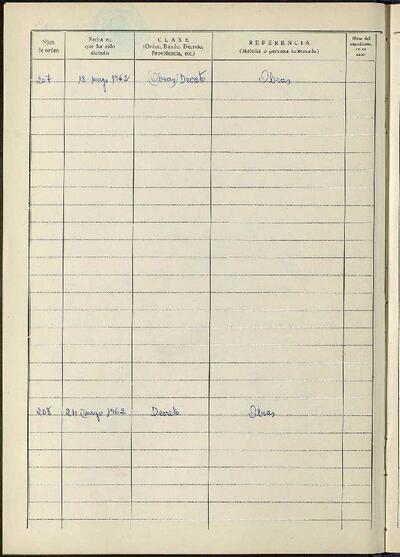 Núm. de orden
Fecha en que ha sido dictado
CLASE
(Orden, Bando, Decreto, Providencia, etc.)
REFERENCIA
(Materia o persona interesada)
Núm. del
207 18 mayo 1962 (Obras) Decreto Obras
208 24 mayo 1962 Decreto Obras